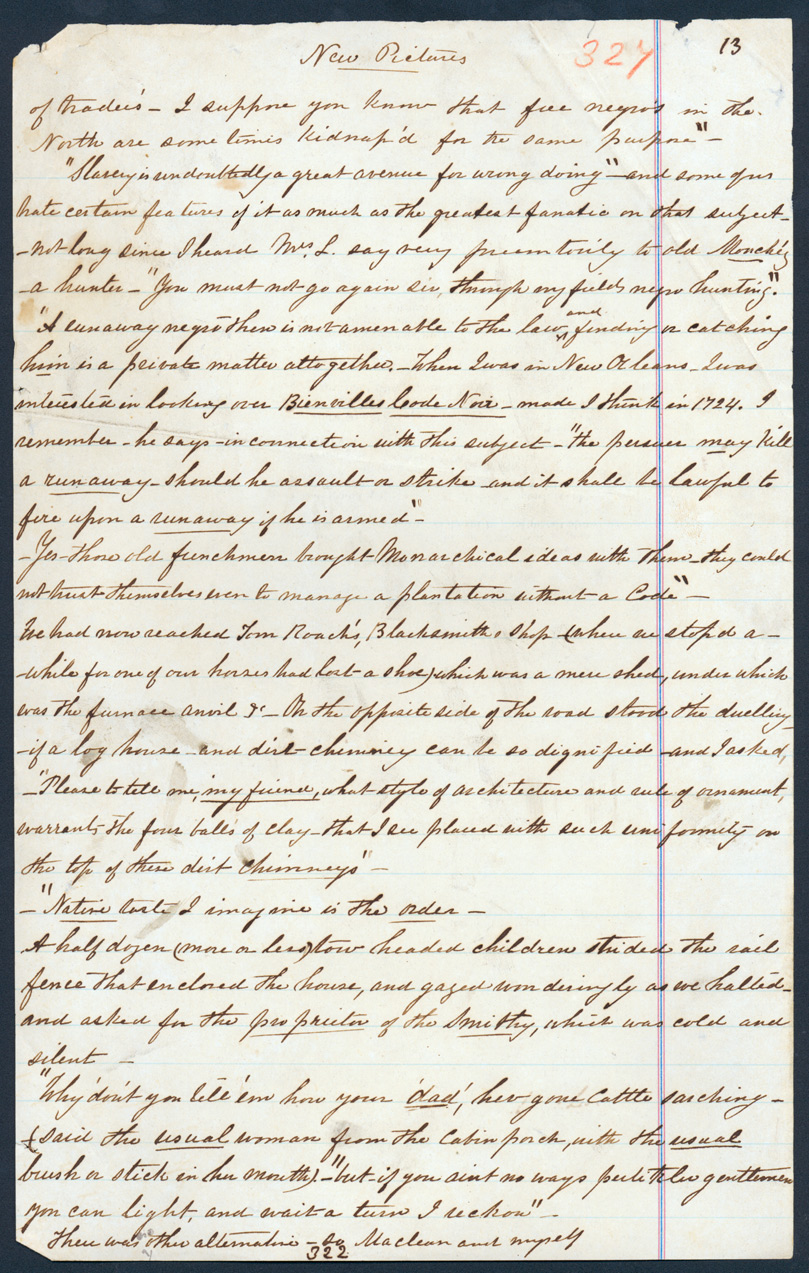 New Pictures 327 13
of trader's – I suppose you know that free negro's in the
North are some times kidnap'd for the same purpose" –
"Slavery is undoubtedly a great avenue for wrong doing" – and some of us
hate certain features of it as much as the greatest fanatic on that subject –
– not long since I heard Mrs. L. say very premtorily to old
– a hunter – "You must not go again sir, through my fields negro hunting."
"A runaway negro then is not amenable to the law, and finding or catching
him is a private matter altogether. – When I was in New Orleans – I was
interested in looking over Bienvilles Code Noir – made I think in 1724. I
remember – he says – in connection with this subject – "the persuer may kill
a runaway – should he assault or strike and it shall be lawful to
fire upon a runaway if he is armed" –
– Yes those old frenchmen brought Monarchical ideas with them – they could
not trust themselves even to manage a plantation without a Code" –
We had now reached Tom Roach's, Blacksmith Shop – (where we stop'd a –
– while for one of our horses had lost a shoe) which was a mere shed, under which
was the furnace anvil &c – On the opposite side of the road stood the dwelling –
– if a log house – and dirt – chimney can be so dignified – and I asked,
– "Please to tell me, my friend, what style of architecture and rule of ornament,
warrants the four balls of clay – that I see placed with such uniformity on
the top of these dirt chimneys" –
– "Native taste I imagine is the order –
A half dozen (more or less) tow headed children strided the rail
fence that enclosed the house, and gazed wonderingly as we halted –
and asked for the proprietor of the smithy, which was cold and
silent –
"Why don't you tell 'em how your 'dad', hev gone Cattle sarching –
(said the usual woman from the Cabin porch, with the usual
brush or stick in her mouth). – "but if you aint no ways gentlemen
you can light, and wait a turn I reckon" –
There was other alternative – so Maclean and myself
322